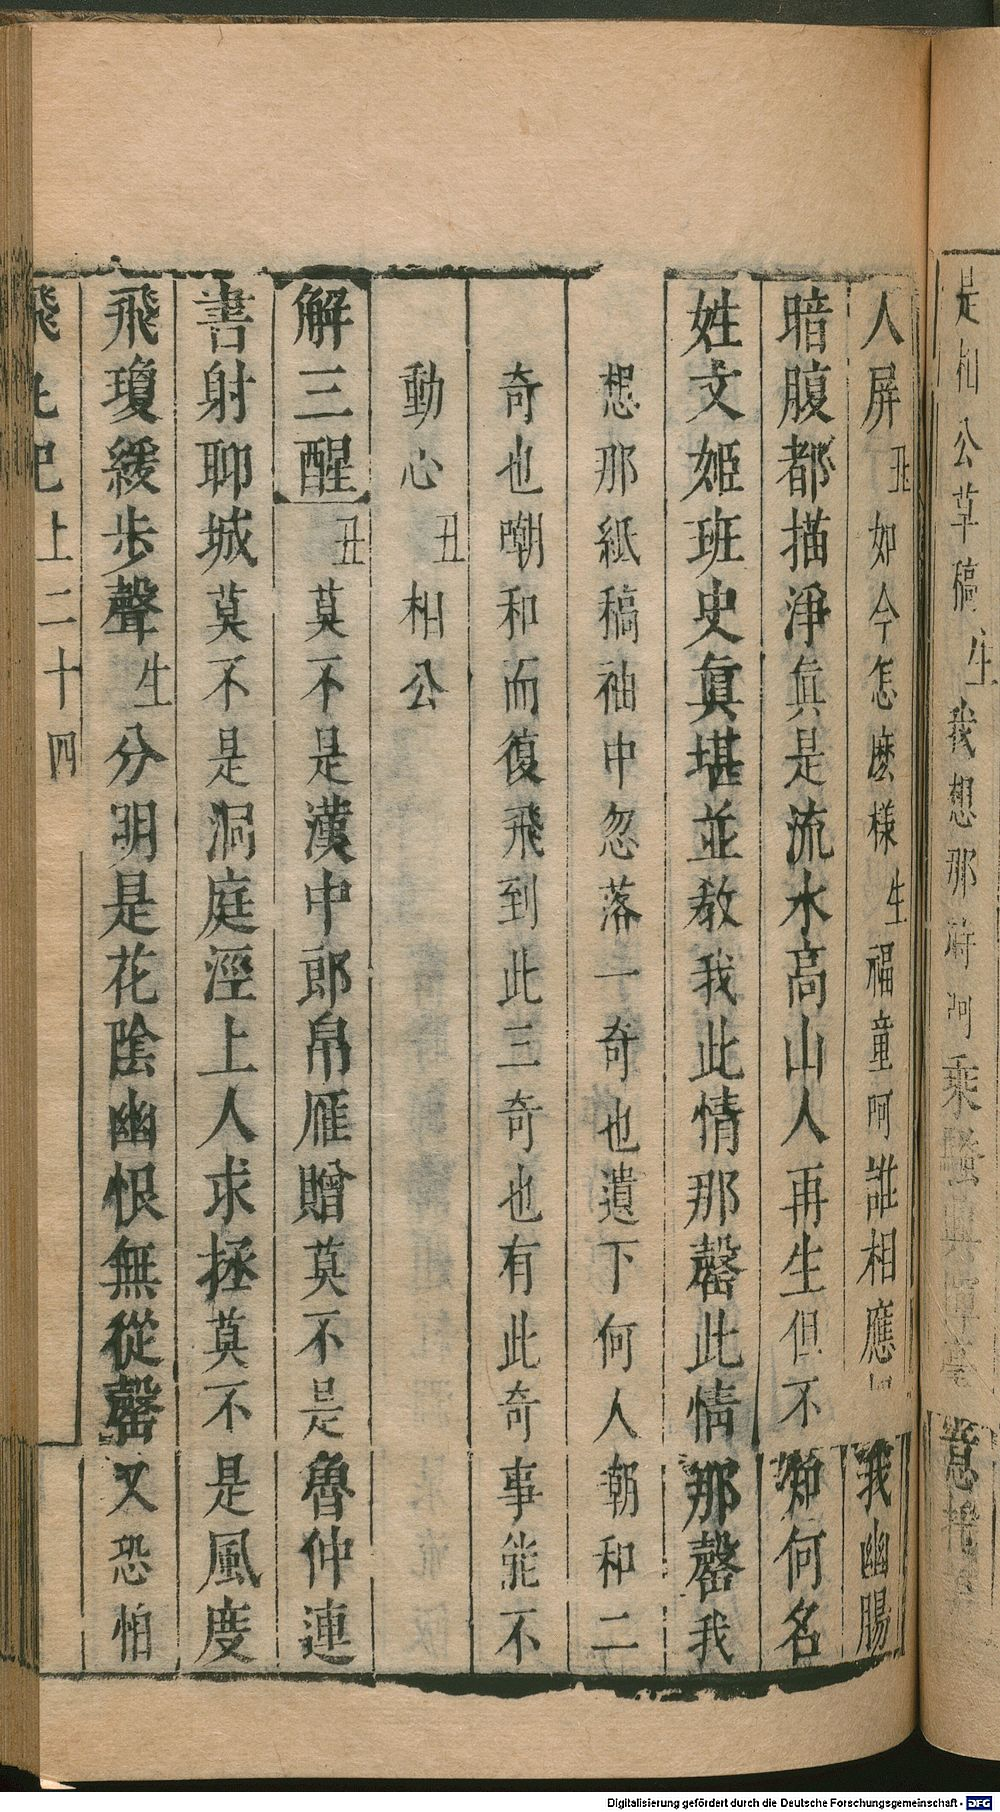 是相公草稿生我想那時河乘意
人屏丑如今怎麽樣生福童呵誰相應我幽腸
暗腹都描淨眞是流水高山人再生但不知何名
姓文姬班史眞堪並教我此情那罄此情那罄我
想那紙稿袖中忽落一奇也遺下何人朝和二
奇也嘲和而復飛到此三奇也有此奇事能不
動心丑相公
解三酲丑莫不是漢中郎帛雁贈莫不是魯仲連
書射聊城莫不是洞庭涇上人求拯莫不是風度
飛瓊緩步聲生分明是花陰幽恨無從罄又恐怕
上二十四
Digitalisierung gefördert durch die Deutsche Forschungsgemeinschaft - DFG